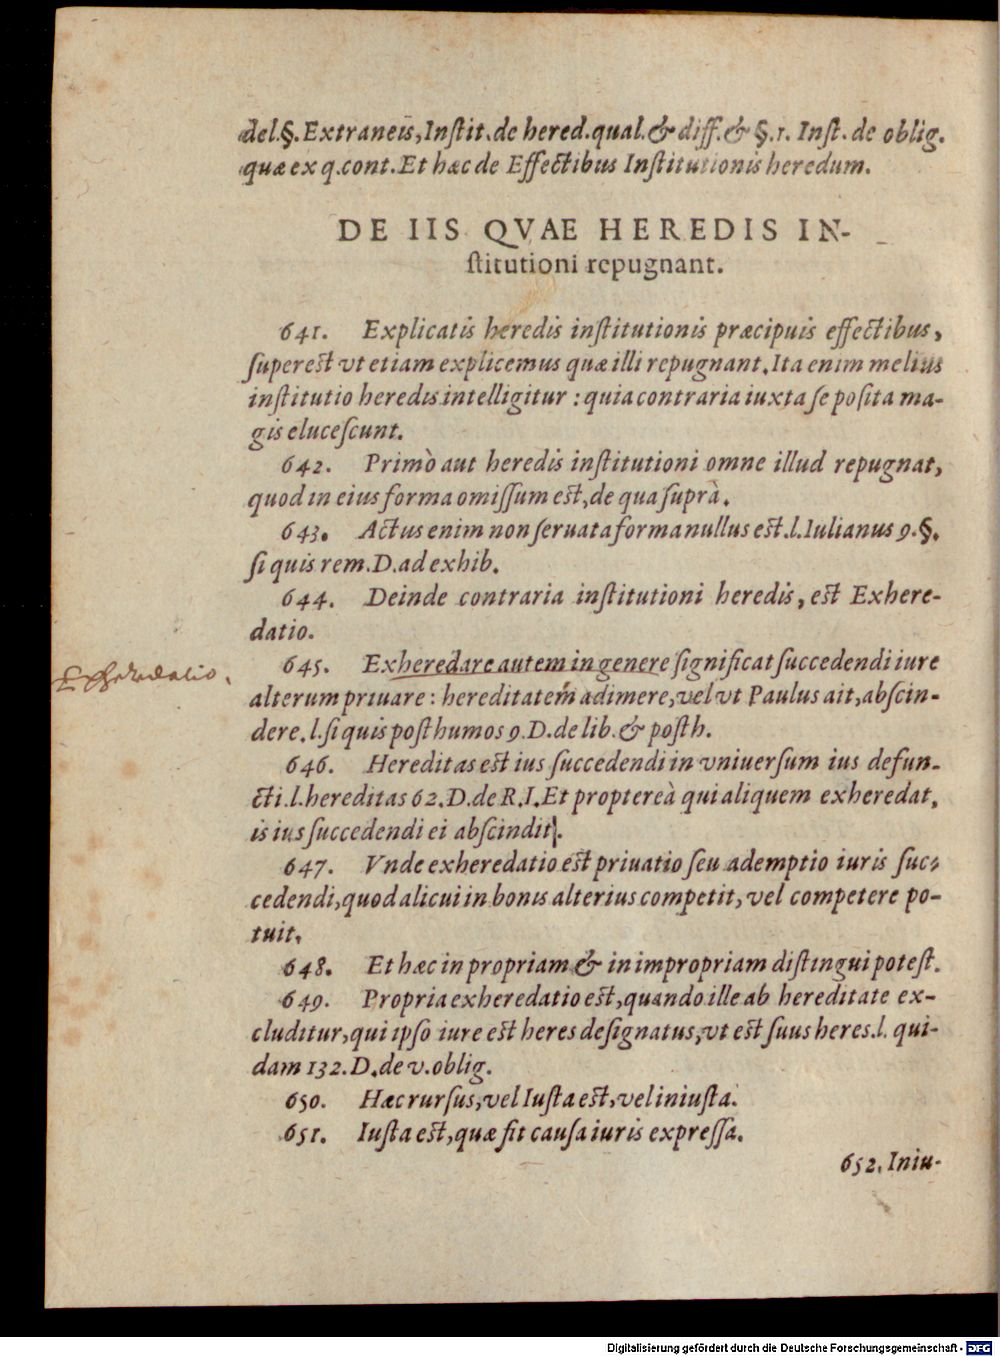 del.§. Extraneis, Instit. de hered. qual. & diff. & §. 1. Inst. de oblig.
quæ ex q. cont. Et hæc de Effectibus Institutionis heredum.
DE IIS QVAE HEREDIS IN-
stitutioni repugnant.
641. Explicatis heredis institutionis præcipuis effectibus,
superest vt etiam explicemus quæ illi repugnant. Ita enim melius
institutio heredis intelligitur : quia contraria iuxta se posita ma-
gis elucescunt.
642. Primò aut heredis institutioni omne illud repugnat,
quod in eius forma omissum est, de qua suprà.
643. Actus enim non seruata forma nullus est. l. Iulianus 9. §.
si quis rem. D. ad exhib.
644. Deinde contraria institutioni heredis, est Exhere-
datio.
Exheredatio.
645. Exheredare autem in genere significat succedendi iure
alterum priuare : hereditatem adimere, vel vt Paulus ait, abscin-
dere. l. si quis posthumos 9. D. de lib. & posth.
646. Hereditas est ius succedendi in vniuersum ius defun-
cti. l. hereditas 62. D. de R. I. Et propterea̍ qui aliquem exheredat,
is ius succedendi ei abscindit.
647. Vnde exheredatio est priuatio seu ademptio iuris suc-
cedendi, quod alicui in bonis alterius competit, vel competere po-
tuit.
648. Et hæc in propriam & in impropriam distingui potest.
649. Propria exheredatio est, quando ille ab hereditate ex-
cluditur, qui ipso iure est heres designatus, vt est suus heres. l. qui-
dam 132. D. de v. oblig.
650. Hæc rursus, vel Iusta est, vel iniusta.
651. Iusta est, quæ fit causa iuris expressa.
652. Iniu-
Digitalisierung gefördert durch die Deutsche Forschungsgemeinschaft - DFG